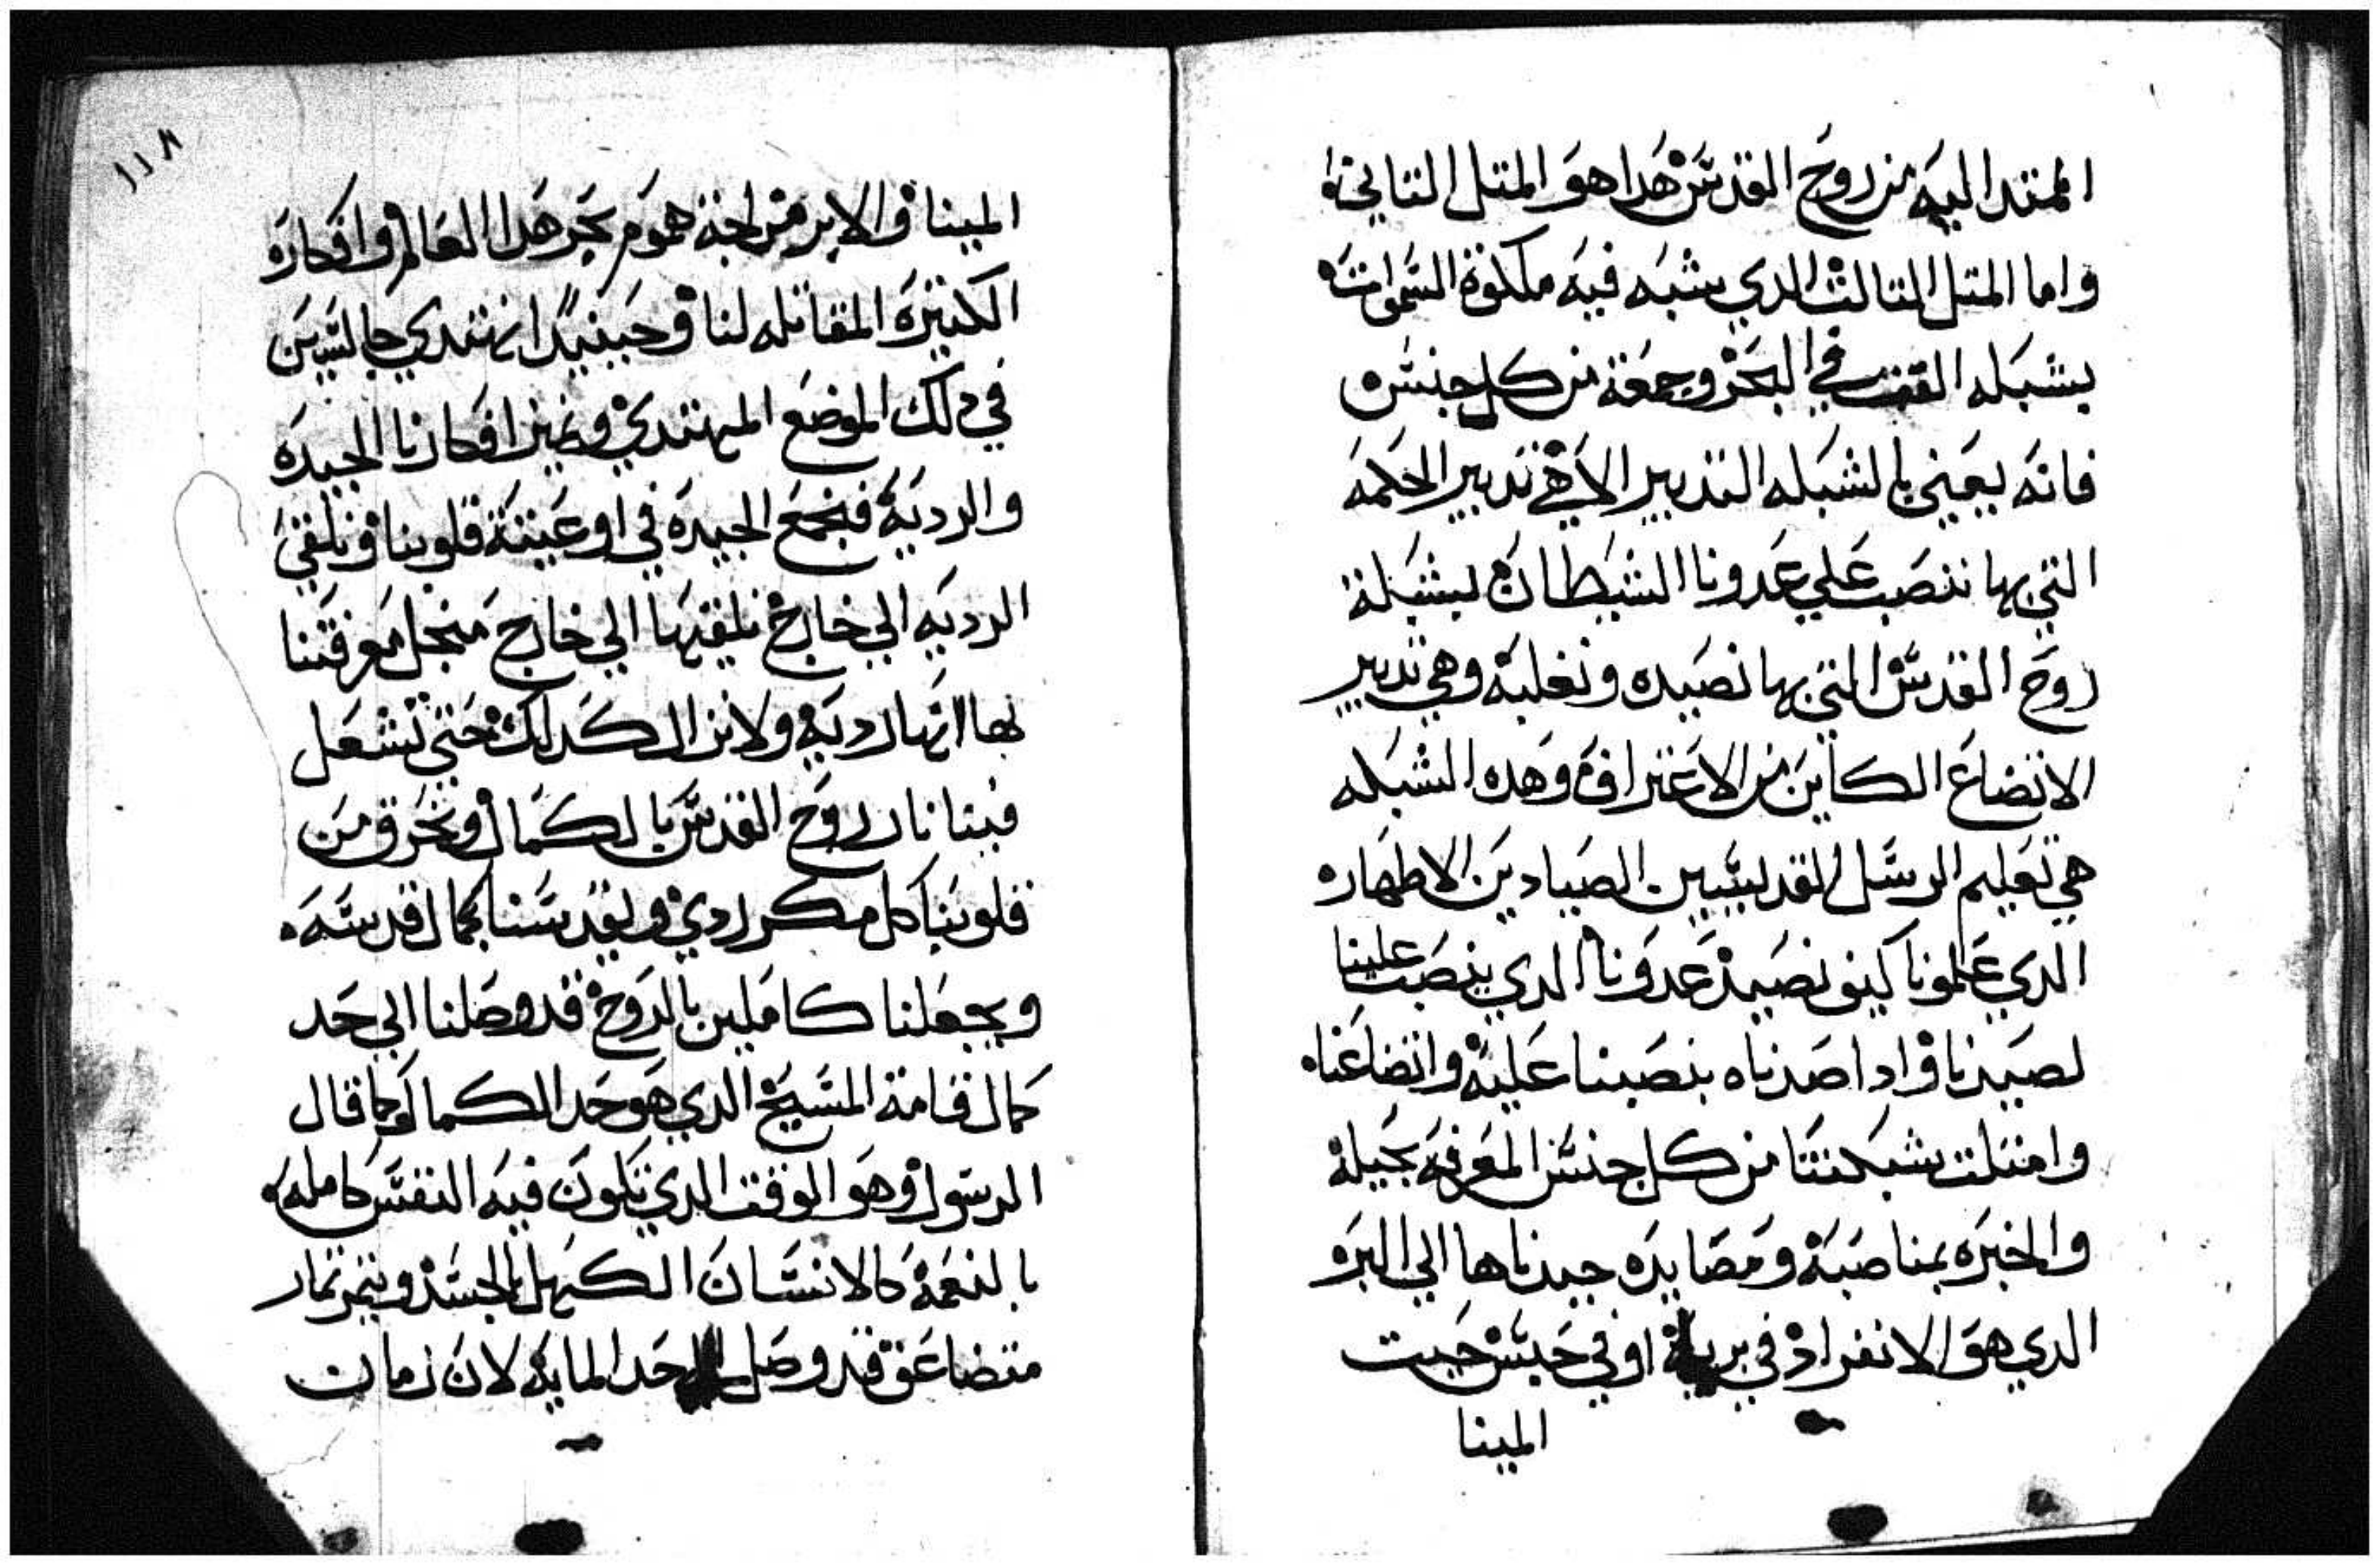 الممتد اليه من روح القدس هدا هو المتل التاني
واما المتل التالت الدي يشبه فيه ملكوة السموات
بشبكه القت في البحر وجمعة من كل جنس
فانه يعني بالشبكه التدبير الاهي تدبير الحكمه
التي بها ننصب علي عدونا الشيطان بشبكة
روح القدس التي بها نصيده ونغلبه وهي تدبير
الاتضاع الكاين من الاعتراف وهده الشبكه
هي تعليم الرسل القديسين الصيادين الاطهار
الدي علمونا كيف نصيد عدونا الدي ينصب علينا
لصيدنا وادا صدناه بنصبنا عليه واتضاعنا
وامتلت شبكتنا من كل جنس المعرفه بحيله
والخبره بمناصبه ومصايده جبدناها الي البر
الدي هو الانفراد في برية او في حبس حيت
المينا
١١٨
المينا والابر من لجة هموم بحر هدا العالم وافكاره
الكتيره المقاتله لنا وحينيدا نبتدي جالسين
في دلك الموضع المبتدي ونميز افكارنا الجيده
والرديه فنجمع الجيده في اوعيتة قلوبنا ونلقي
الرديه الي خارج نلقيها الي خارج منجل معرفتنا
لها انها رديه ولا نزال كدلك حتي تشعل
فينا نار روح القدس بالكمال وتحرق من
قلوبنا كل مكر ردي ويقدسنا بكمال قدسه
ويجعلنا كاملين بالروح قد وصلنا الي حد
كمال قامة المسيح الدي هو حد الكمال كما قال
الرسول وهو الوقت الدي تكون فيه النفس كامله
بالنعمه كالانسان الكهل بالجسد وتتمر تمار
متضاعفه قد وصل حد المايه لان زمان